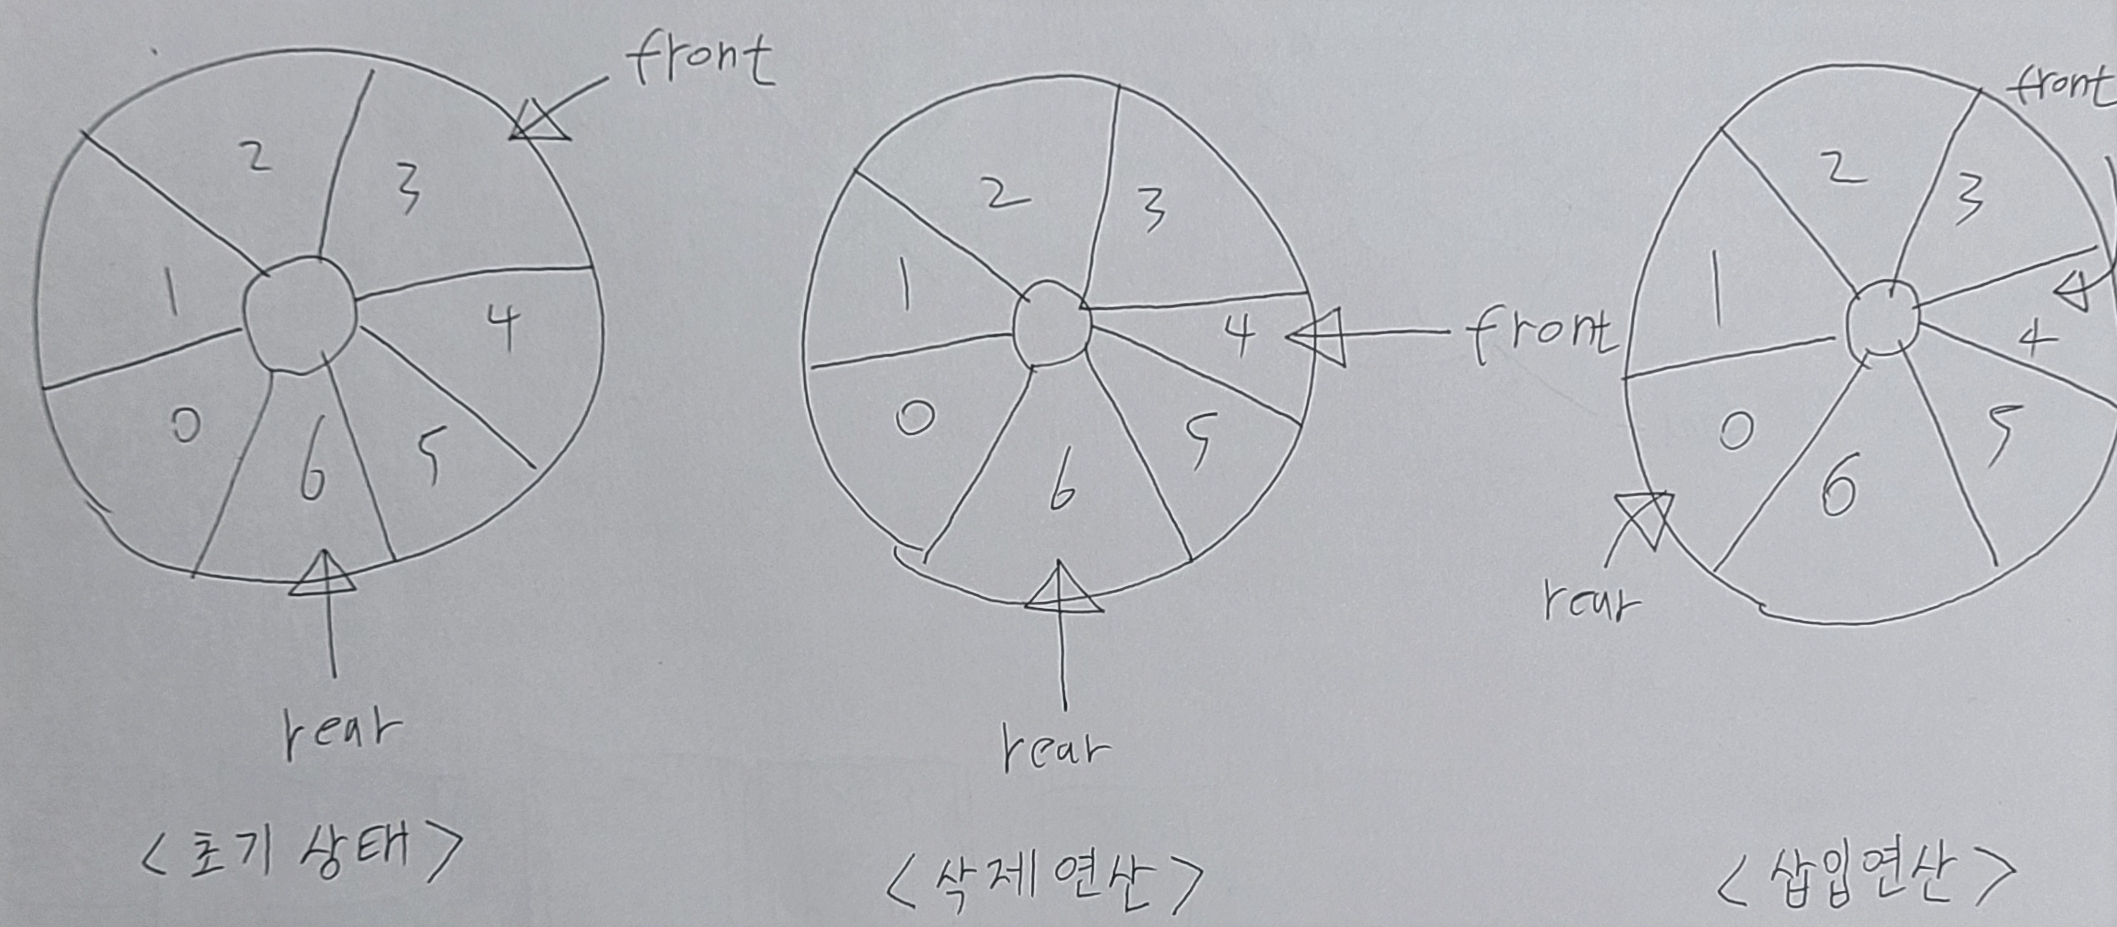 front
2
3
1
4
0
6
5
rear
<초기 상태>
2
3
1
4
front
0
5
6
rear
<삭제연산>
front
2
3
1
4
0
5
6
rear
<삽입연산>